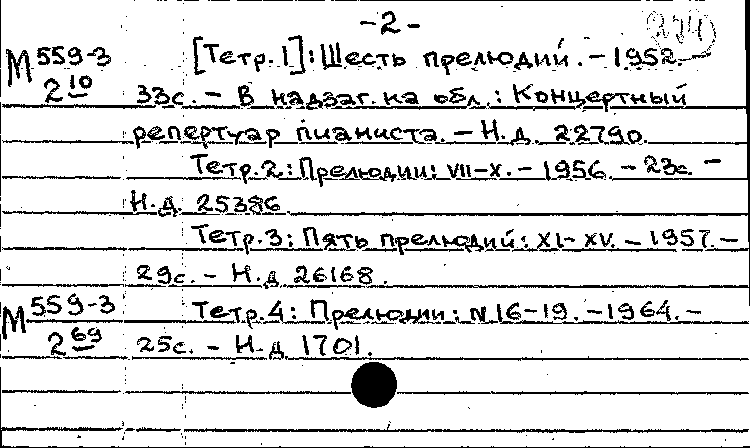 -2-
М 559-3 [Тетр.1]: Шесть прелюдий. - 1952. -
2 10 33с. - В надзаг. на обл.: Концертный
репертуар пианиста. - Н.д. 22790.
Тетр.2: Прелюдии: VII-X. - 1956. - 23с. -
Н.д. 25386
Тетр.3: Пять прелюдий: XI-XV. - 1957. -
29с. - Н.д 26168.
М 559-3 Тетр.4: Прелюдии: N 16-19. - 1964. -
2 69 25с. - Н.д 1701.